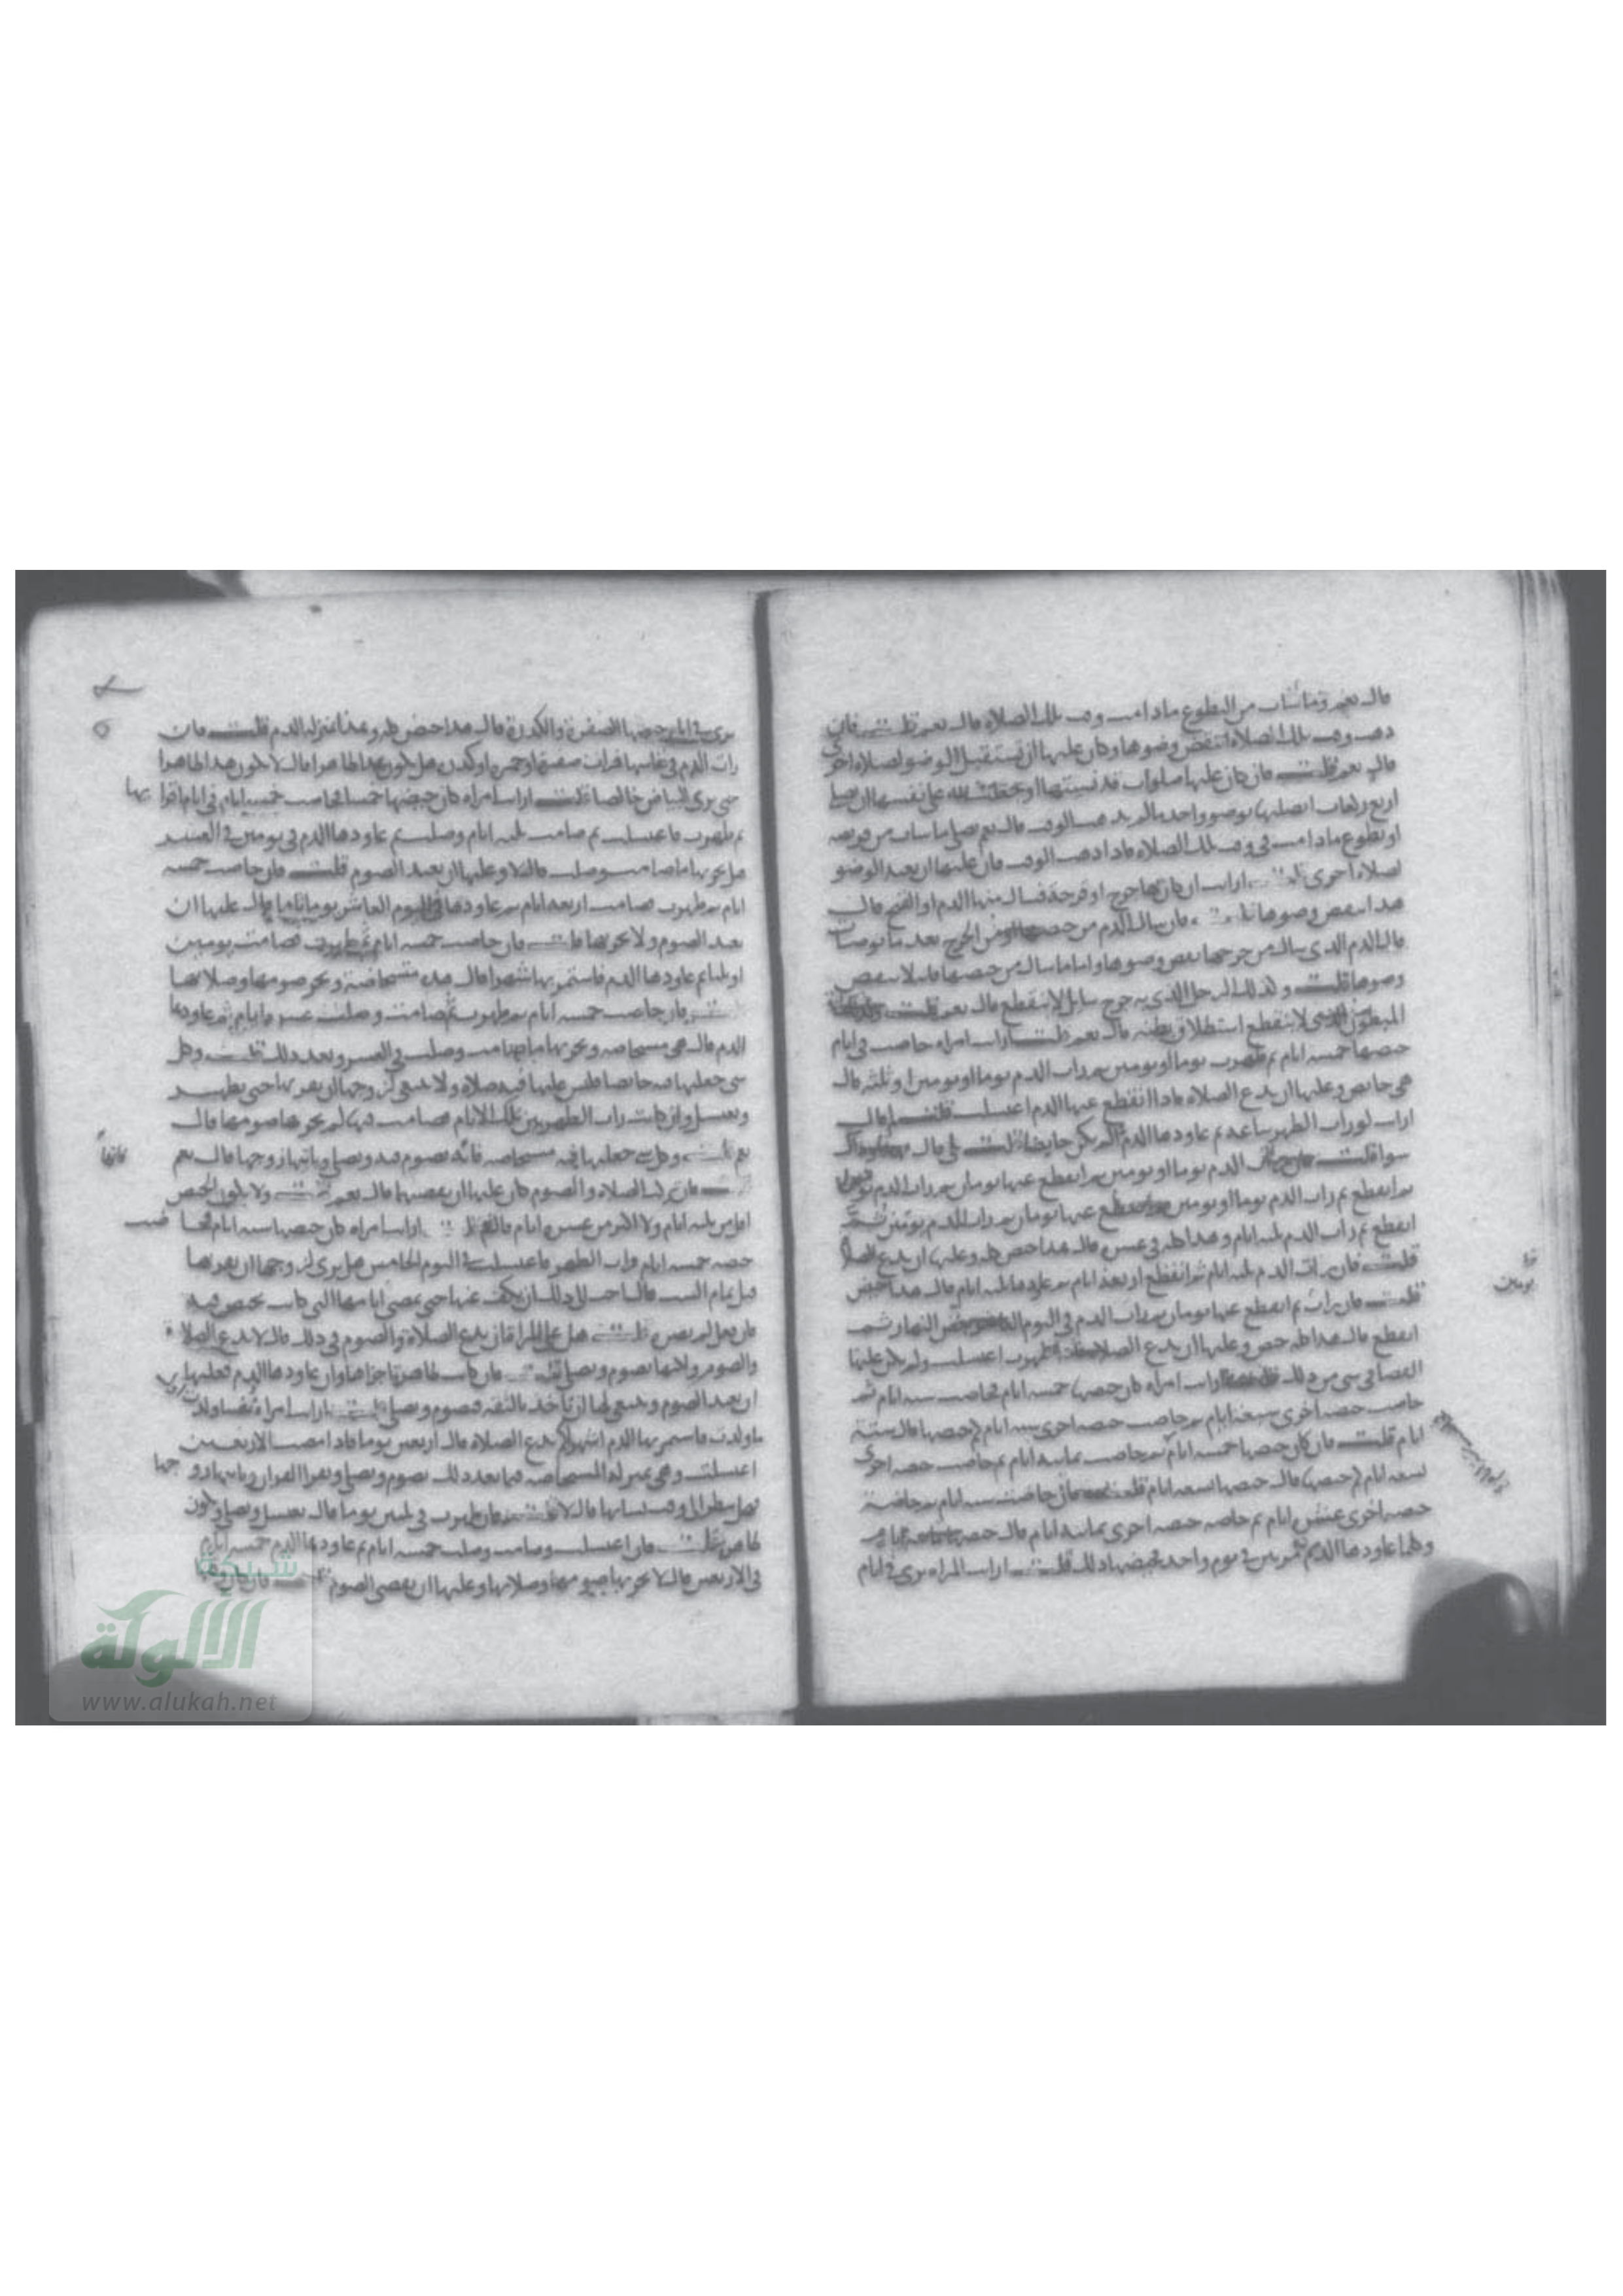 قال نعم وما شات من التطوع ما دامت في وقت تلك الصلاة قال نعم قلت فان
ذهب وقت تلك الصلاة انتقض وضوها وكان عليها ان تستقبل الوضو لصلاة اخرى
قال نعم قلت فان كان عليها صلوات قد نسيتها او جعلت لله على نفسها ان تصلي
اربع ركعات اتصليها بوضو واحد ما لم يذهب الوقت قال نعم تصلي ما شات من فريضة
او تطوع ما دامت في وقت تلك الصلاة فاذا ذهب الوقت فان عليها ان تعيد الوضو
لصلاة اخرى قلت ارايت ان كان بها جرح او قرحة فسال منها الدم او القيح قال
هذا ينقض وضوها قلت فان سال الدم من الجرح بعد ما توضات
قال الدم الذي سال من جرحها ينقض وضوها واما ما سال من حيضها فلا ينقض
وضوها قلت وكذلك الرجل الذي به جرح سايل لا ينقطع قال نعم قلت
المبطون الذي لا ينقطع استطلاق بطنه قال نعم قلت ارايت امراة حاضت في ايام
حيضها خمسة ايام ثم طهرت يوما او يومين ثم رات الدم يوما او يومين او ثلثة قال
هي حايض وعليها ان تدع الصلاة فاذا انقطع عنها الدم اغتسلت قلت لم قال
ارايت لو رات الطهر ساعة ثم عاودها الدم الم تكن حايضا قلت بلى قال
سوا قلت الدم يوما او يومين ثم انقطع عنها يومان ثم رات الدم
ثم انقطع ثم رات الدم يوما او يومين عنها يومان ثم رات الدم يومين ثم
انقطع ثم رات الدم ثلثة ايام وهذا كله في عشر قال هذا حيض كله وعليها ان تدع الصلاة
قلت فان رات الدم ثلثة ايام ثم انقطع اربعة ايام ثم عاودها ثلثة ايام قال هذا حيض
قلت فان رات ثم انقطع عنها يومان ثم رات الدم في اليوم النهار ثم
انقطع قال هذا كله حيض وعليها ان تدع الصلاة طهرت اغتسلت ولم يكن عليها
القضا في شي من ذلك قلت ارايت امراة كان حيضها خمسة ايام فحاضت ستة ايام ثم
حاضت حيضة اخرى سبعة ايام ثم حاضت حيضة اخرى ستة ايام كم حيضها قال ستة
ايام قلت فان كان حيضها خمسة ايام ثم حاضت ثمانية ايام ثم حاضت حيضة اخرى
تسعة ايام كم حيضها قال حيضها تسعة ايام قلت فان حاضت ستة ايام ثم حاضت
حيضة اخرى عشرة ايام ثم حاضت حيضة اخرى ثمانية ايام قال حيضها
وكلما عاودها الدم مرتين في يوم واحد فحيضها ذلك قلت ارايت المراة ترى في ايام
يومان
ترى في ايام حيضها الصفرة والكدرة قال هذا حيض كله وهذا بمنزلة الدم قلت فان
رات الدم في نفاسها فرات صفرة او حمرة او كدرة هل يكون هذا طاهرا قال لا يكون هذا طاهرا
حتى ترى البياض خالصا قلت ارايت امراة كان حيضها خمسا فحاضت خمسة ايام في ايام اقرائها
ثم طهرت فاغتسلت ثم صامت ثلثة ايام وصلت ثم عاودها الدم في يومين في العشر
هل يجزيها ما صامت وصلت قال لا وعليها ان تعيد الصوم قلت فان حاضت خمسة
ايام ثم طهرت فصامت اربعة ايام ثم عاودها في اليوم العاشر يوما تاما قال عليها ان
تعيد الصوم ولا يجزيها قلت فان حاضت خمسة ايام ثم طهرت فصامت يومين
او ثلثا ثم عاودها الدم فاستمر بها شهرا قال هذه مستحاضة ويجزي صومها وصلاتها
قلت فان حاضت خمسة ايام ثم طهرت ثم صامت وصلت عشرة ايام ثم عاودها
الدم قال هي مستحاضة ويجزيها ما صامت وصلت في العشر وبعد ذلك قلت وكل
شي جعلتها فيه حايضا فليس عليها فيه صلاة ولا ينبغي لزوجها ان يقربها حتى تطهر
وتغتسل وان كانت رات الطهر بين تلك الايام فصامت فيها لم يجزها صومها قال
نعم قلت وكل شي جعلتها فيه مستحاضة فانه تصوم فيه وتصلي وياتيها زوجها قال نعم
قلت فان تركت الصلاة والصوم كان عليها ان تقضيها قال نعم قلت ولا يكون الحيض
اقل من ثلثة ايام ولا اكثر من عشرة ايام قال نعم قلت ارايت امراة كان حيضها ستة ايام فحاضت
حيضة خمسة ايام ورات الطهر فاغتسلت في اليوم الخامس هل ترى لزوجها ان يقربها
قبل تمام الست قال احب الي ذلك ان يكف عنها حتى تمضي ايامها التي كانت تحيض فيها
فان فعل لم يضره قلت هل على المراة ان تدع الصلاة والصوم في ذلك قال لا تدع الصلاة
والصوم ولكنها تصوم وتصلي قلت فان كانت طاهرة اجزاها وان عاودها الدم فعليها
ان تعيد الصوم وينبغي لها ان تاخذ بالثقة فتصوم وتصلي قلت ارايت امراة نفسا ولدت اول
ما ولدت فاستمر بها الدم اشهرا كم تدع الصلاة قال اربعين يوما فاذا مضت الاربعين
اغتسلت وهي بمنزلة المستحاضة فيما بعد ذلك تصوم وتصلي وتقرا القران وياتيها زوجها
هل تنظر الى وقت نسايها قال لا قلت فان طهرت في ثلثين يوما قال تغتسل وتصلي وتكون
طاهرة قلت فان اغتسلت وصامت وصلت خمسة ايام ثم عاودها الدم خمسة ايام
في الاربعين قال لا يجزيها صومها وصلاتها وعليها ان تقضي الصوم
شبكة
الألوكة
www.alukah.net